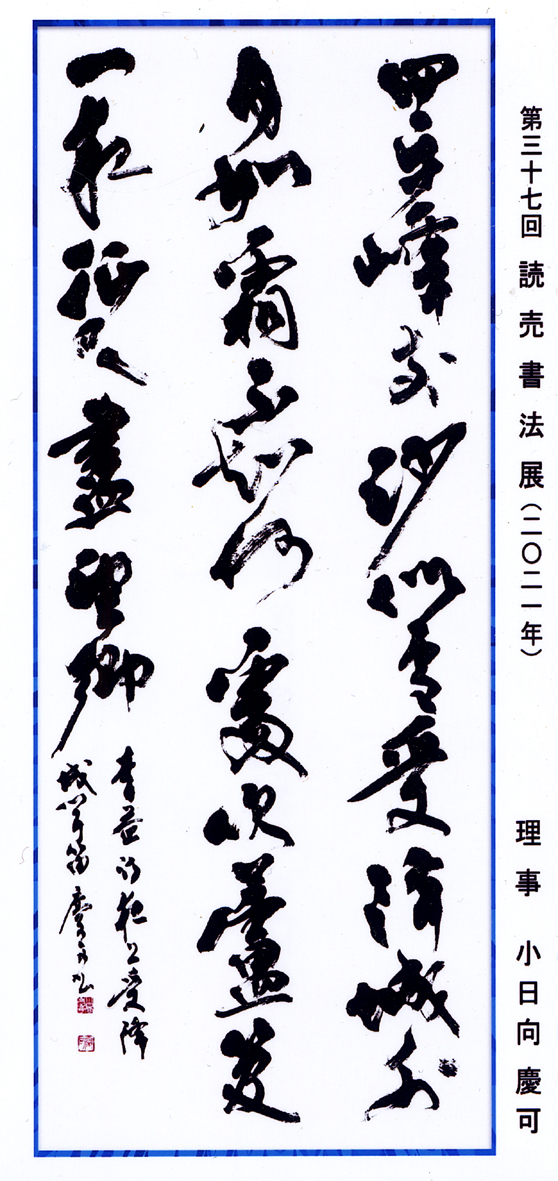 第三十七回 読売書法展(二〇二一年) 理事 小日向慶可
回樂峰前沙似雪受降城外
月如霜不知何處吹蘆管
一夜征人盡望鄉
李益詩夜上受降
城聞笛 慶可